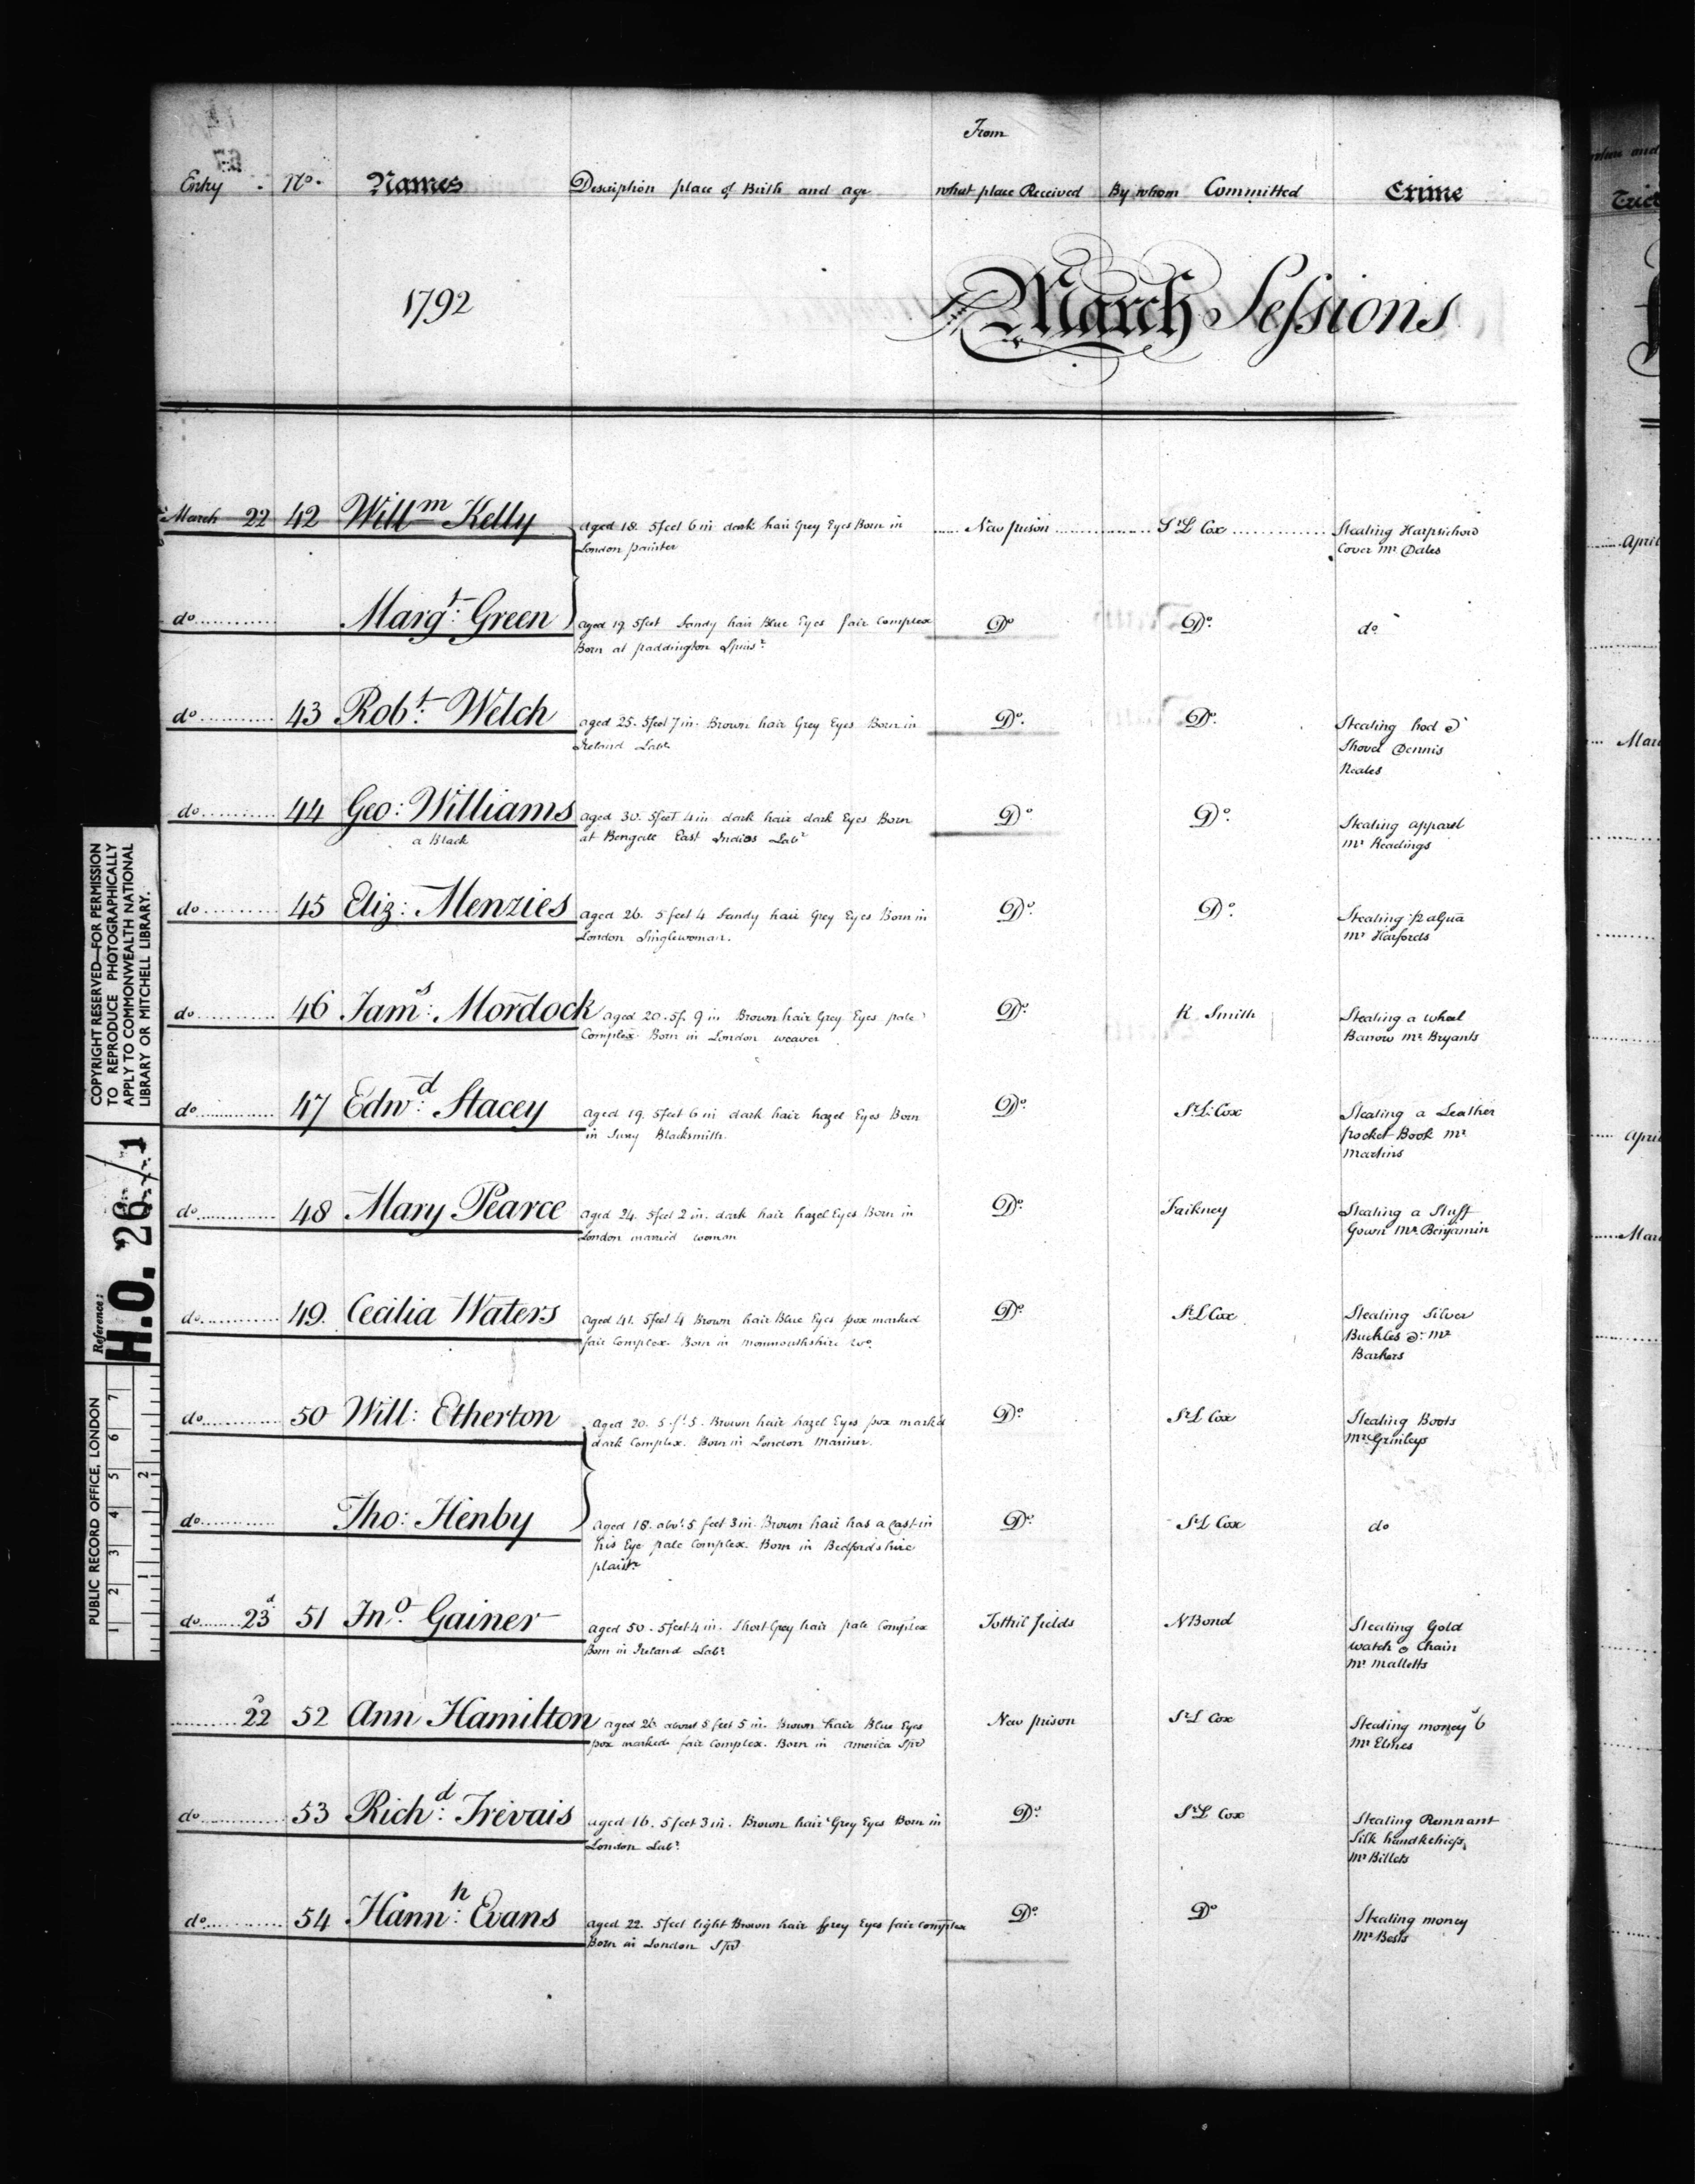 From
Entry No. Names Description place of Birth and age what place Received By whom Committed Crime
1792 March Sessions
March 22 42 Willm Kelly aged 18. 5 feet 6 in dark hair Grey Eyes Born in New prison Sr L Cox Stealing Harpsichord
London painter Cover Mr Dales
do Margt: Green aged 19 5 feet Sandy hair Blue Eyes fair Complex Do Do. do
Born at paddington Spinsr
do 43 Robt: Welch aged 25. 5 feet 7 in. Brown hair Grey Eyes Born in Do. Do. Stealing hod &
Ireland Labr Shovel Dennis
Neales
do 44 Geo: Williams aged 30. 5 feet 4 in dark hair dark Eyes Born Do. Do. Stealing apparel
a Black at Bengall East Indies Labr Mr Readings
do 45 Eliz: Menzies aged 26. 5 feet 4 Sandy hair Grey Eyes Born in Do. Do. Stealing
London Singlewoman. Mr Harfords
do 46 Jams: Mordock aged 20. 5f. 9 in Brown hair Grey Eyes pale Do. R Smith Stealing a wheel
Complex. Born in London weaver Barrow Mr Bryants
do 47 Edwd: Stacey aged 19. 5 feet 6 in dark hair hazel Eyes Born Do. Sr L: Cox Stealing a Leather
in Surry Blacksmith. pocket Book Mr
Martins
do 48 Mary Pearce aged 24. 5 feet 2 in. dark hair hazel Eyes Born in Do. Faikney Stealing a Stuff
London married woman Gown Mr Benjamin
do 49. Cecilia Waters aged 41. 5 feet 4 Brown hair Blue Eyes pox marked Do. Sr L Cox Stealing Silver
fair Complex. Born in Monmouthshire Wo. Buckles &c Mr
Barkers
do 50 Will: Etherton aged 20. 5 ft 5. Brown hair hazel Eyes pox marked Do. Sr L Cox Stealing Boots
dark Complex. Born in London Mariner. Mr Grinleys
do Tho: Henby aged 18. abot. 5 feet 3 in. Brown hair has a Cast in Do. Sr L Cox do
his Eye pale Complex. Born in Bedfordshire
plaistr
do 23d 51 Jno. Gainer aged 50. 5 feet 4 in. Short Grey hair pale Complex Tothil fields N Bond Stealing Gold
Born in Ireland Labr watch & Chain
Mr Malletts
22 52 Ann Hamilton aged 26 about 5 feet 5 in. Brown hair Blue Eyes New prison Sr L Cox Stealing money
pox marked fair Complex. Born in America Spr Mr Elmes
do 53 Richd: Trevais aged 16. 5 feet 3 in. Brown hair Grey Eyes Born in Do. Sr L Cox Stealing Remnant
London Labr. Silk handkchiefs
Mr Billets
do 54 Hannh: Evans aged 22. 5 feet light Brown hair Grey Eyes fair complex Do. Do Stealing money
Born in London Spr Mr Bests
COPYRIGHT RESERVED—FOR PERMISSION
TO REPRODUCE PHOTOGRAPHICALLY
APPLY TO COMMONWEALTH NATIONAL
LIBRARY OR MITCHELL LIBRARY.
Reference:
H.O. 26/1
PUBLIC RECORD OFFICE, LONDON
1 2 3 4 5 6 7
1 2